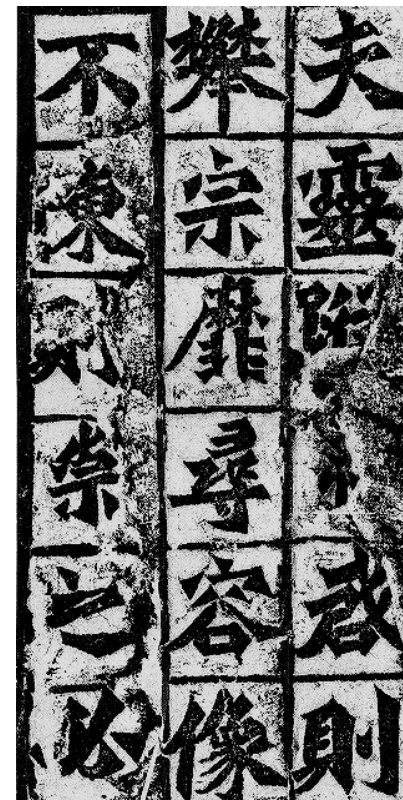 夫靈蹤啓則
攀宗靡尋容像
不陳則崇之必